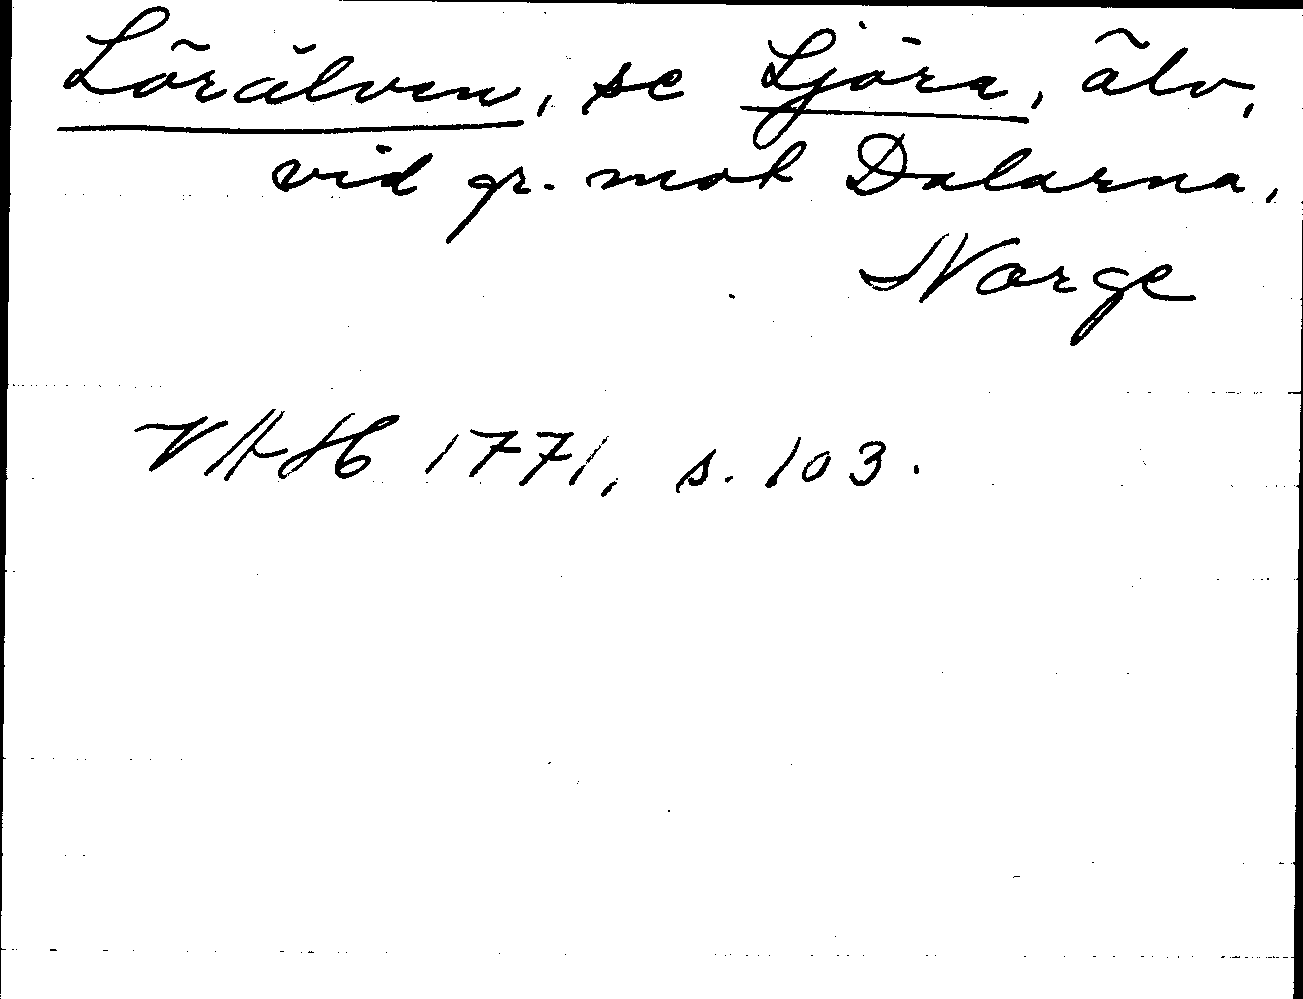 Lörälven, se Ljöra, älv,
vid gr. mot Dalarna,
Norge
VAH 1771, s. 103.